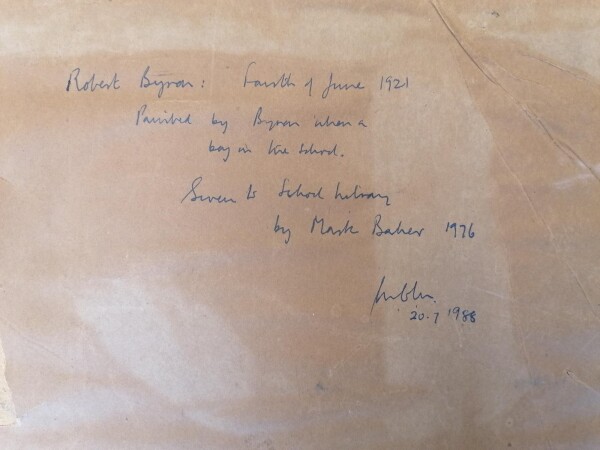 Robert Byron: Fourth of June 1921
Painted by Byron when a
boy in the School.
Given to School Library
by Mark Baker 1976
20.7 1988